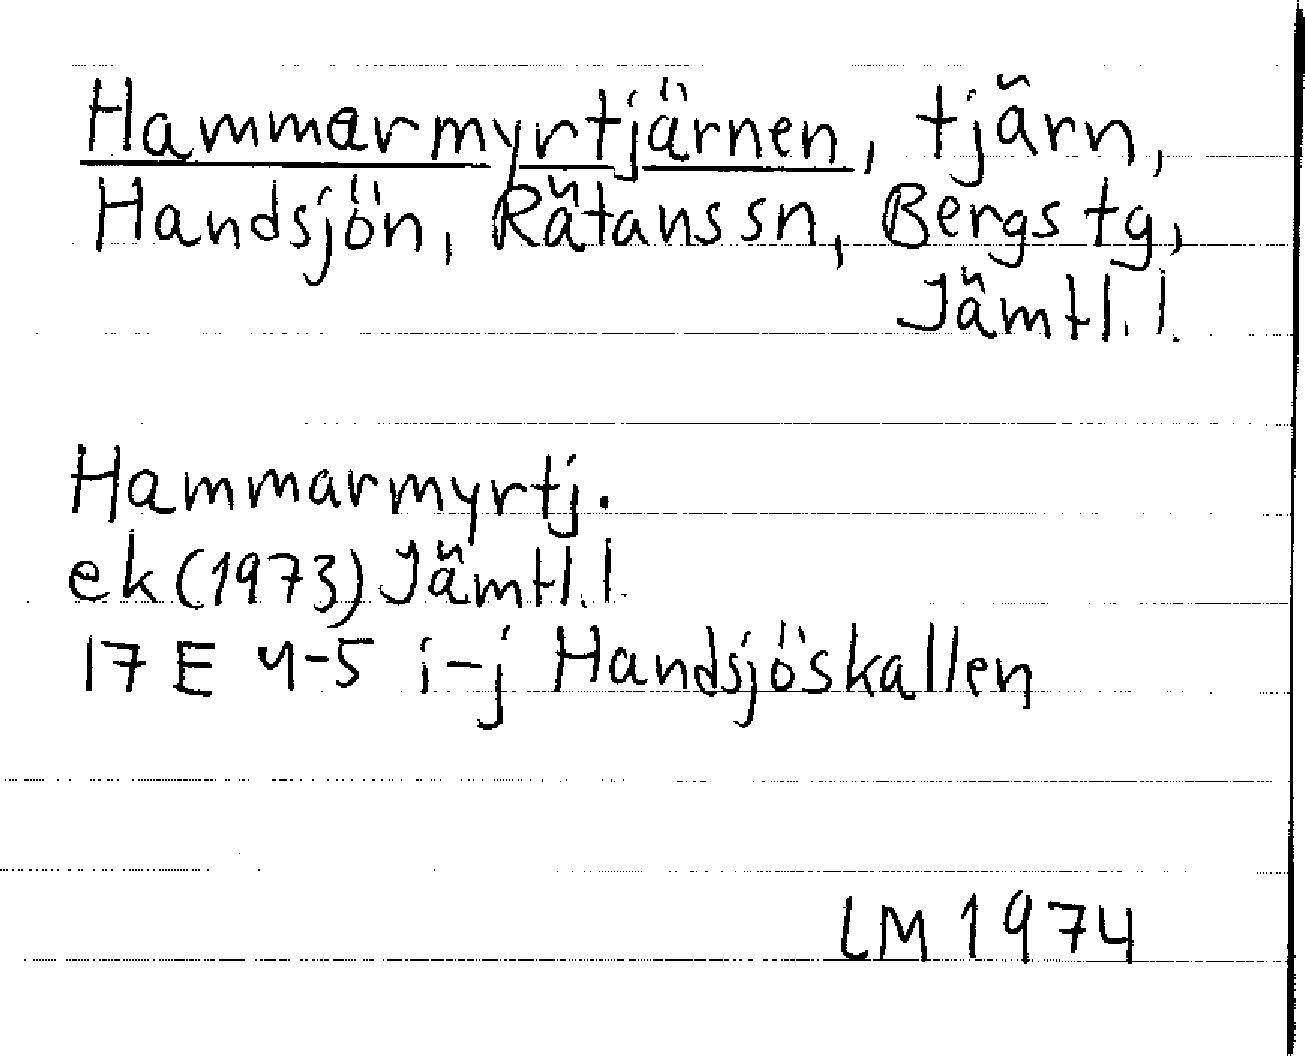 Hammarmyrtjärnen, tjärn,
Handsjön, Rätans sn, Bergs tg,
Jämtl. l.
Hammarmyrtj.
ek (1973) Jämtl. l.
17 E 4-5 i-j Handsjöskallen
LM 1974